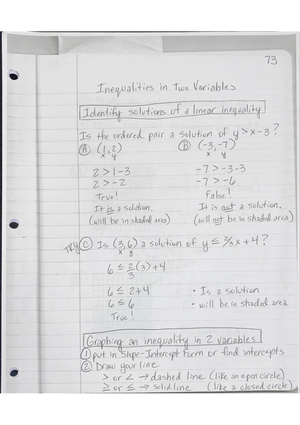 73
Inequalities in Two Variables
Identify solutions of a linear inequality
Is the ordered pair a solution of y > x - 3?
Ⓐ (1, 2)
x y
2 > 1 - 3
2 > -2
True!
It is a solution.
(will be in shaded area)
Ⓑ (-3, -7)
x y
-7 > -3 - 3
-7 > -6
False!
It is not a solution.
(will not be in shaded area)
TRY Ⓒ Is (3, 6) a solution of y ≤ 2/3 x + 4?
x y
6 ≤ 2/3 (3) + 4
6 ≤ 2 + 4
6 ≤ 6
True!
• Is a solution
• will be in shaded area
Graphing an inequality in 2 variables
① put in Slope-Intercept form or find intercepts
② Draw your line
> or < → dashed line (like an open circle)
≥ or ≤ → solid line (like a closed circle)